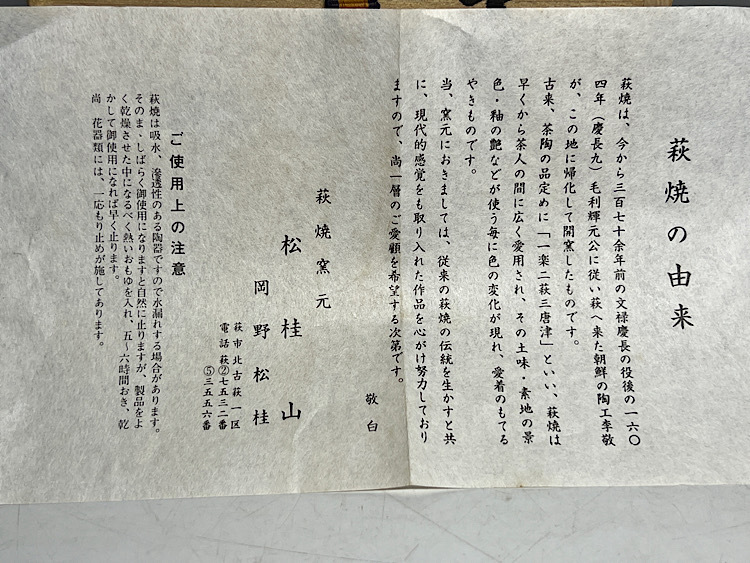 萩焼の由来
萩焼は、今から三百七十余年前の文禄慶長の役後の一六〇
四年（慶長九）毛利輝元公に従い萩へ来た朝鮮の陶工李敬
が、この地に帰化して開窯したものです。
古来、茶陶の品定めに「一楽二萩三唐津」といい、萩焼は
早くから茶人の間に広く愛用され、その土味・素地の景
色・釉の艶などが使う毎に色の変化が現れ、愛着のもてる
やきものです。
当、窯元におきましては、従来の萩焼の伝統を生かすと共
に、現代的感覚をも取り入れた作品を心がけ努力しており
ますので、尚一層のご愛顧を希望する次第です。
敬白
萩焼窯元
松桂山
岡野松桂
萩市北古萩一区
電話萩②七五三二番
⑤三五五六番
ご使用上の注意
萩焼は吸水、滲透性のある陶器ですので水漏れする場合があります。
そのま丶しばらく御使用になりますと自然に止りますが、製品をよ
く乾燥させた中になるべく熱いおもゆを入れ、五〜六時間おき、乾
かして御使用になれば早く止ります。
尚　花器類には、一応もり止めが施してあります。